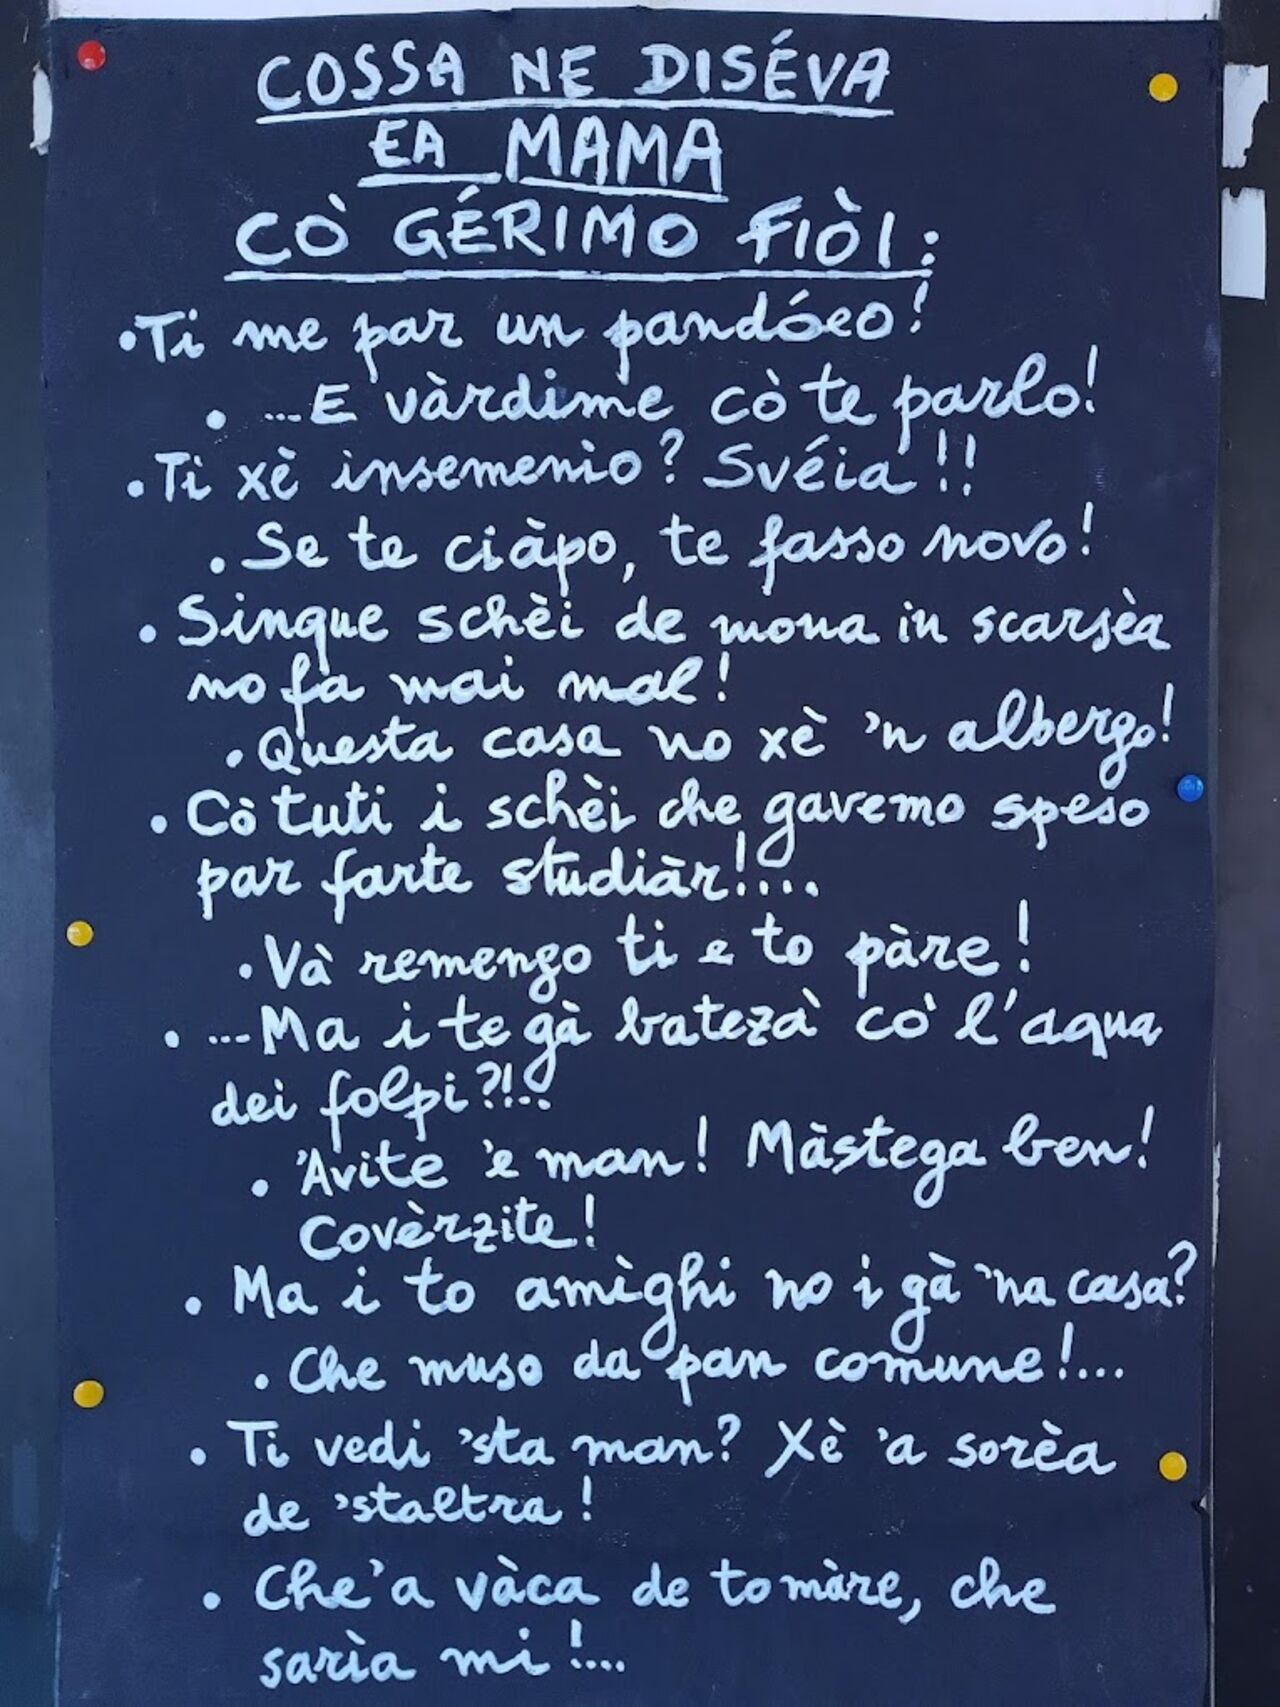 COSSA NE DISÉVA
EA MAMA
CÒ GÉRIMO FIÒI:
•Ti me par un pandóeo!
• ...E vàrdime cò te parlo!
•Ti xè insemenio? Svéia!!
•Se te ciàpo, te fasso novo!
• Sinque schèi de mona in scarsèa
no fa mai mal!
•Questa casa no xè 'n albergo!
• Cò tuti i schèi che gavemo speso
par farte studiàr!....
•Và remengo ti e to pàre!
• ...Ma i te gà batezà cò l'aqua
dei folpi?!..
• 'Avite 'e man! Màstega ben!
Covèrzite!
• Ma i to amìghi no i gà 'na casa?
• Che muso da pan comune!...
• Ti vedi 'sta man? Xè 'a sorèa
de 'staltra!
• Che 'a vàca de to màre, che
sarìa mi!....